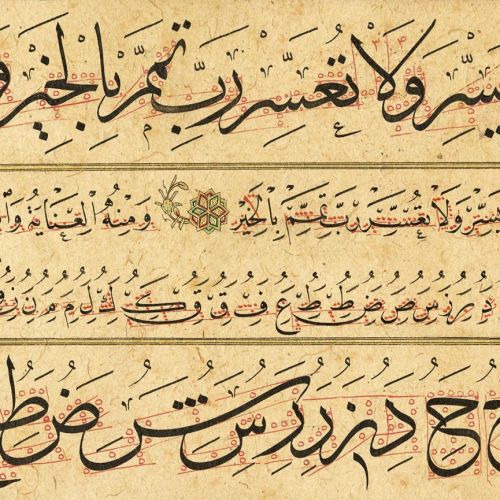 يسِّر ولا تعسِّر ربِّ تمِّم بالخير
يسِّر ولا تعسِّر ربِّ تمِّم بالخير ومنه العناية
دُ رُ زُ سُ صُ ضُ طُ ظُ عُ فُ قُ قُ كُ لُ مُ مُ نُ
حُ دُ زُ رُ سُ شُ ضُ طُ